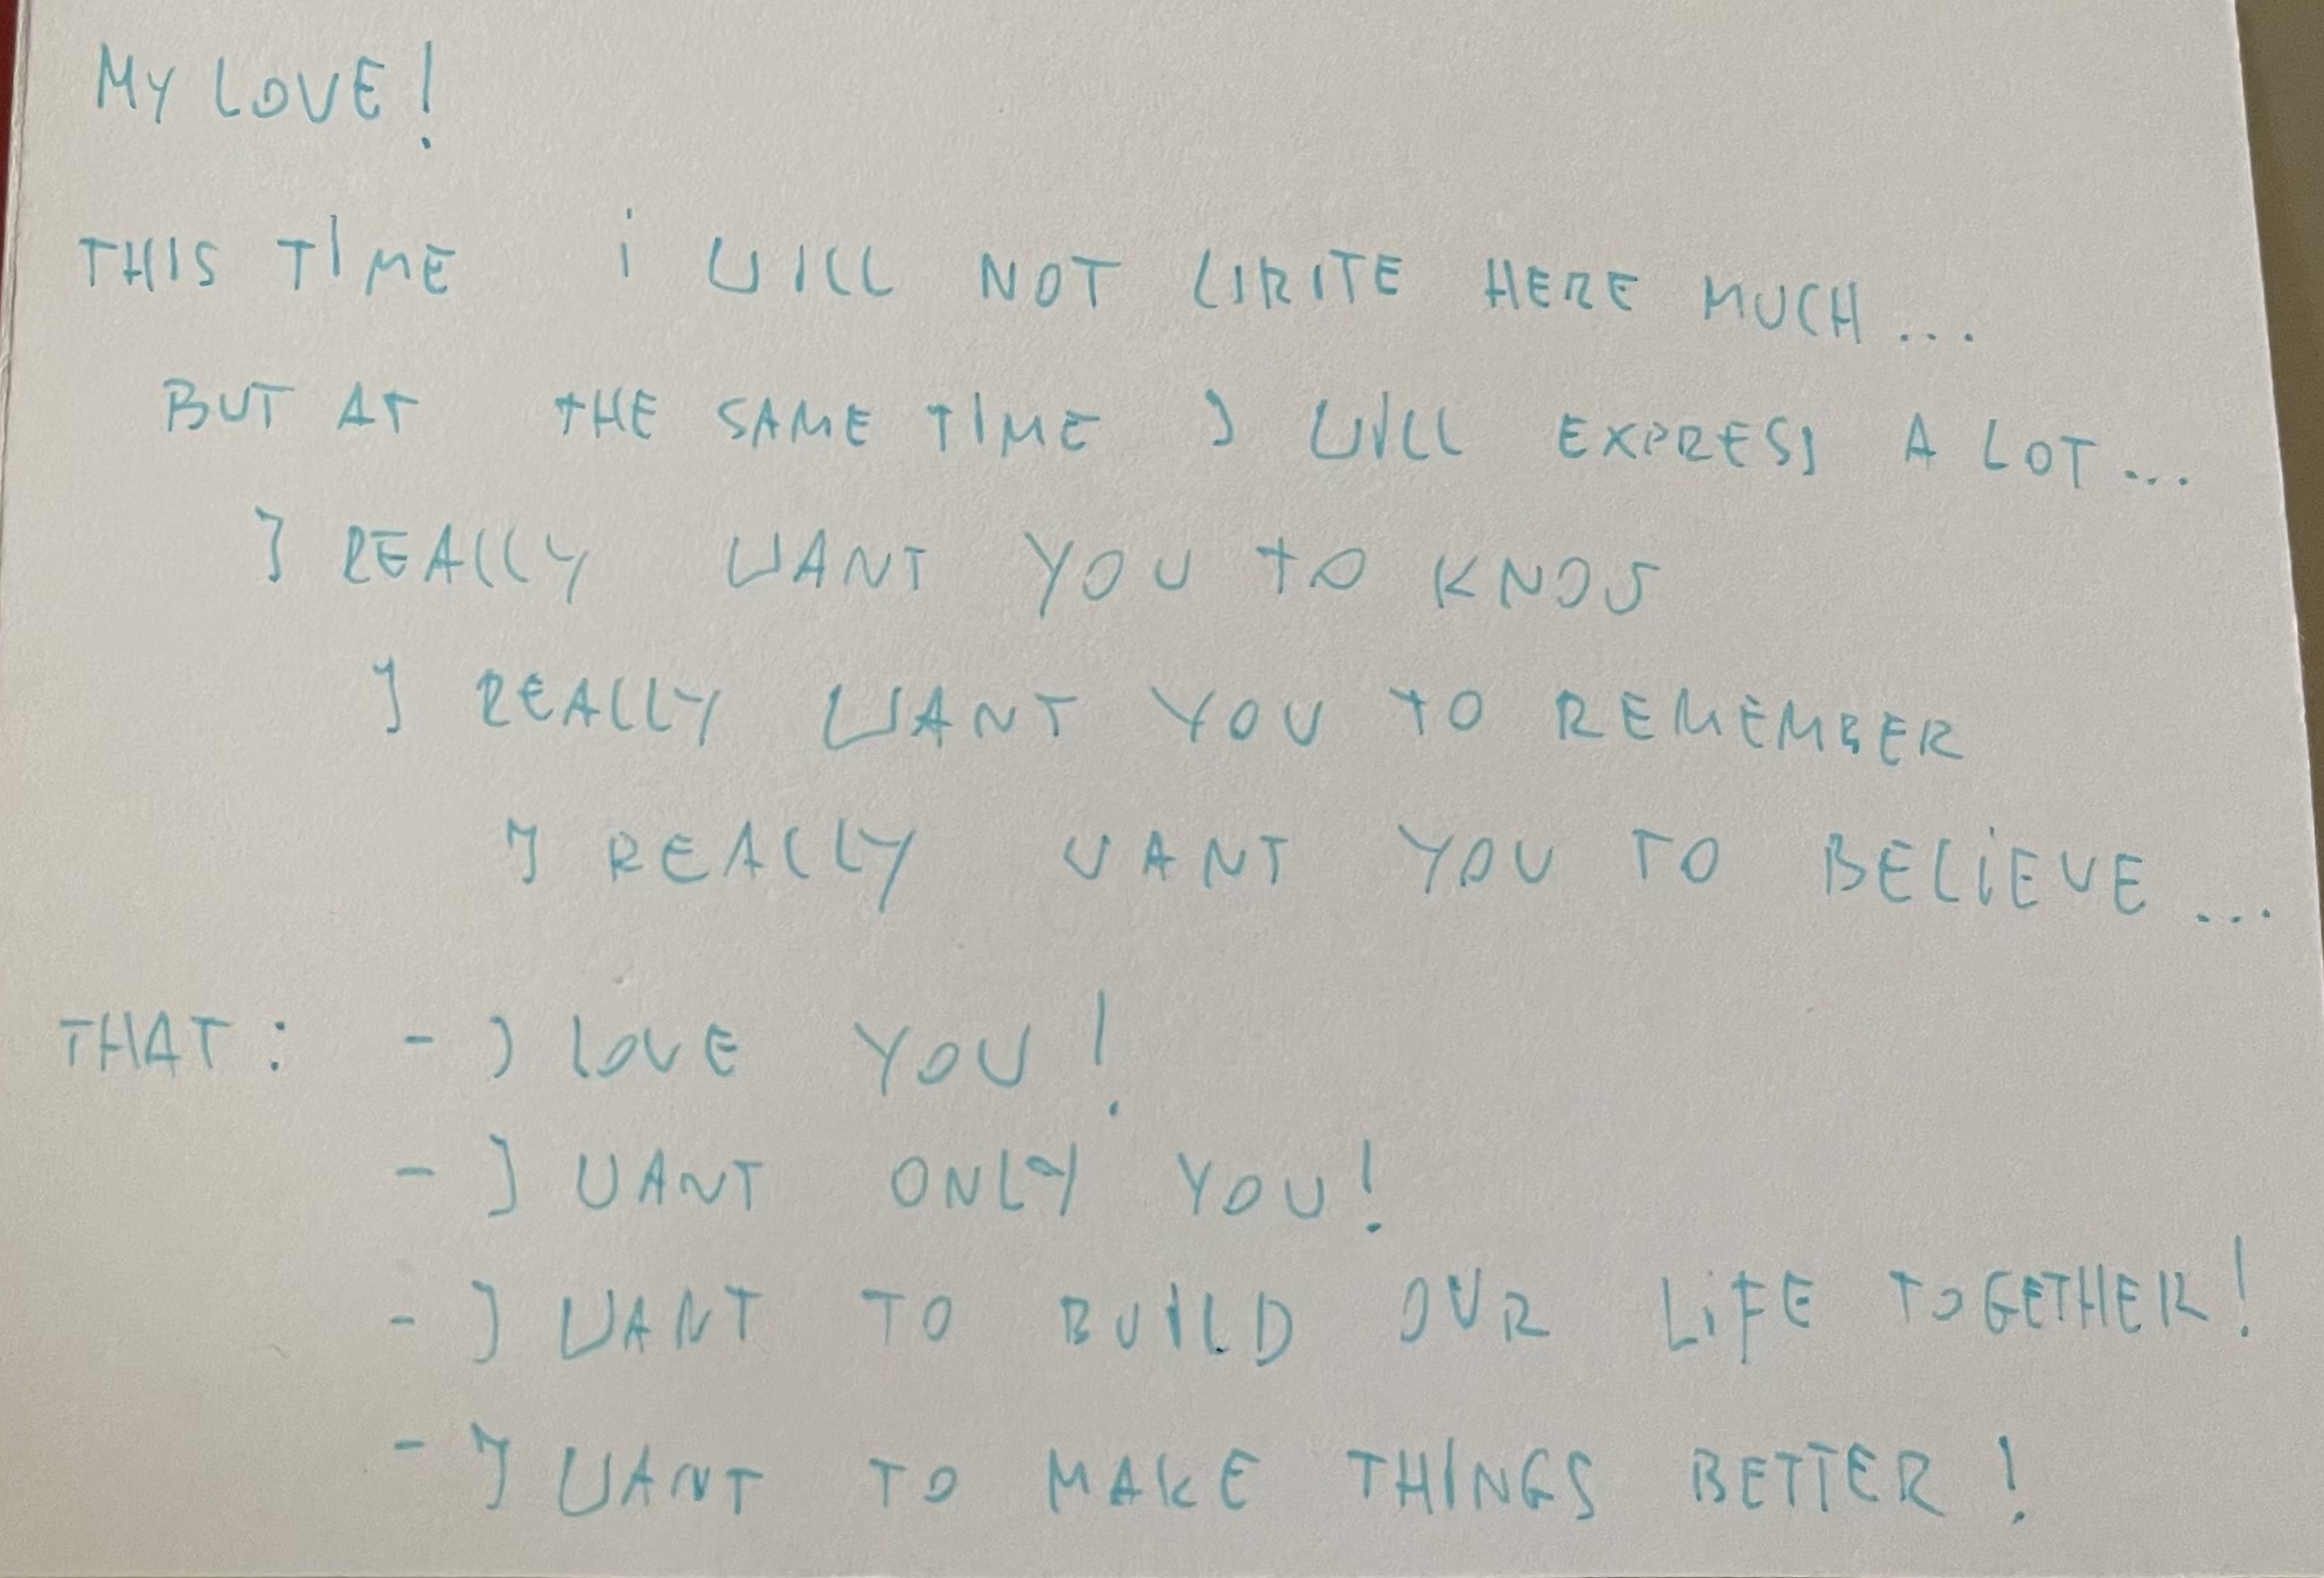 MY LOVE!
THIS TIME i WILL NOT WRITE HERE MUCH...
BUT AT THE SAME TIME I WILL EXPRESS A LOT...
I REALLY WANT YOU TO KNOW
I REALLY WANT YOU TO REMEMBER
I REALLY WANT YOU TO BELiEVE...
THAT: - I LOVE YOU!
- I WANT ONLY YOU!
- I WANT TO BUILD OUR LiFE TOGETHER!
- I WANT TO MAKE THINGS BETTER!